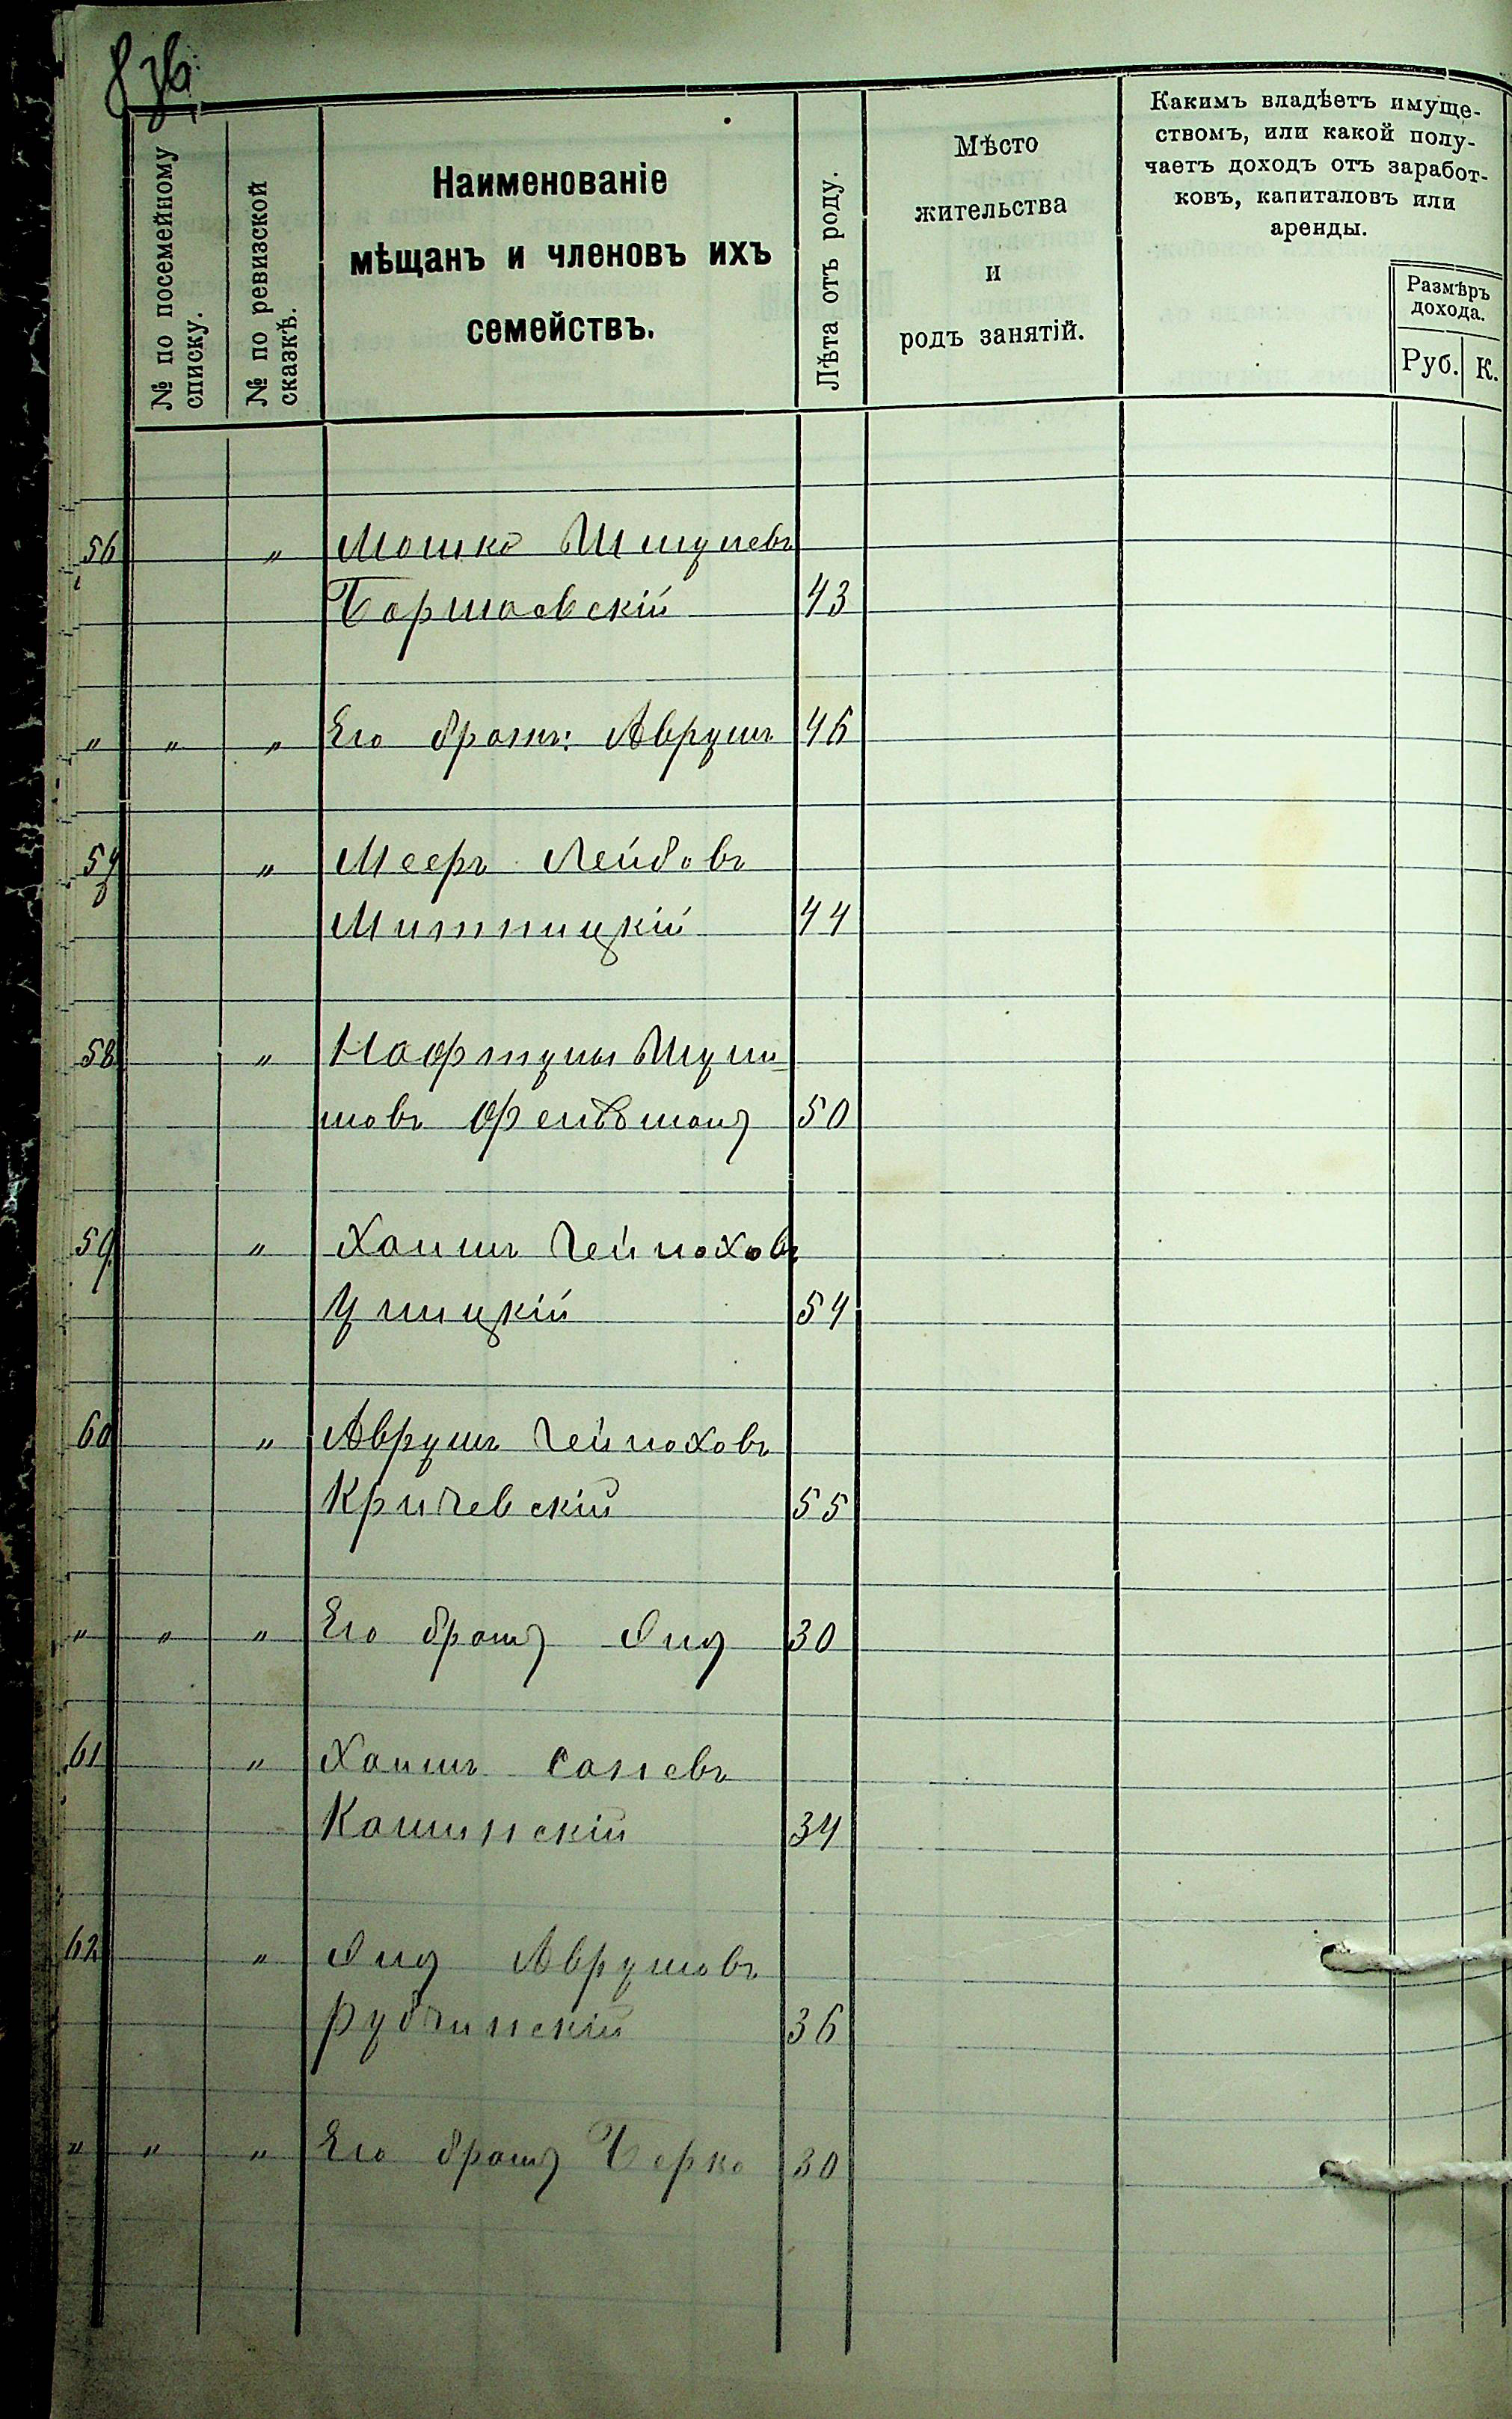 № по посемейному
списку.
№ по ревизской
сказкѣ.
Наименованіе
мѣщанъ и членовъ ихъ
семействъ.
Лѣта отъ роду.
Мѣсто
жительства
и
родъ занятій.
Какимъ владѣетъ имуще-
ствомъ, или какой полу-
чаетъ доходъ отъ заработ-
ковъ, капиталовъ или
аренды.
Размѣръ
дохода.
Руб. К.
56 " Мошко
Боршаевскій 43
" " " Его братъ: Аврумъ 46
57 " Мееръ Лейбовъ
Митницкій 44
58 " Нафтулы Шули-
мовъ Фельдманъ 50
59 " Хаимъ Гейноховъ
Улицкій 54
60 " Аврумъ Гейноховъ
Кричевскій 55
" " " Его братъ Эля 30
61 " Хаимъ
Каминскій 34
62 " Эля Аврумовъ
Рубчинскій 36
" " " Его братъ Берко 30